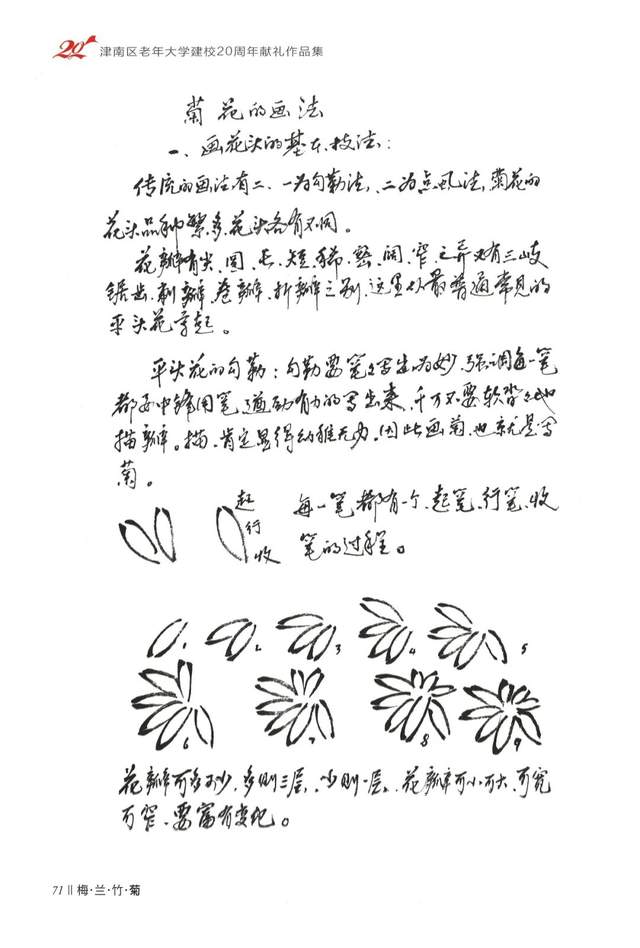 20
津南区老年大学建校20周年献礼作品集
菊花的画法
一、画花头的基本技法：
传统的画法有二、一为勾勒法，二为点虱法，菊花的
花头品种繁多，花头各有不同。
花瓣有尖、圆、长、短、稀、密、阔、窄、之异又有三岐
锯齿、刺瓣、卷瓣、折瓣之别，这里从最普通常见的
平头花写起。
平头花的勾勒：勾勒要笔笔写出为妙，强调每一笔
都要中锋用笔，遒劲有力的写出来，千万不要软沓沓地
描瓣。描、肯定显得幼稚无力。因此画菊也就是写
菊。
起
行
收
每一笔都有一个、起笔、行笔、收
笔的过程。
1 2 3 4 5
6 7 8 9
花瓣可多可少，多则三层，少则一层。花瓣可小可大、可宽
可窄、要富有变化。
71 || 梅·兰·竹·菊